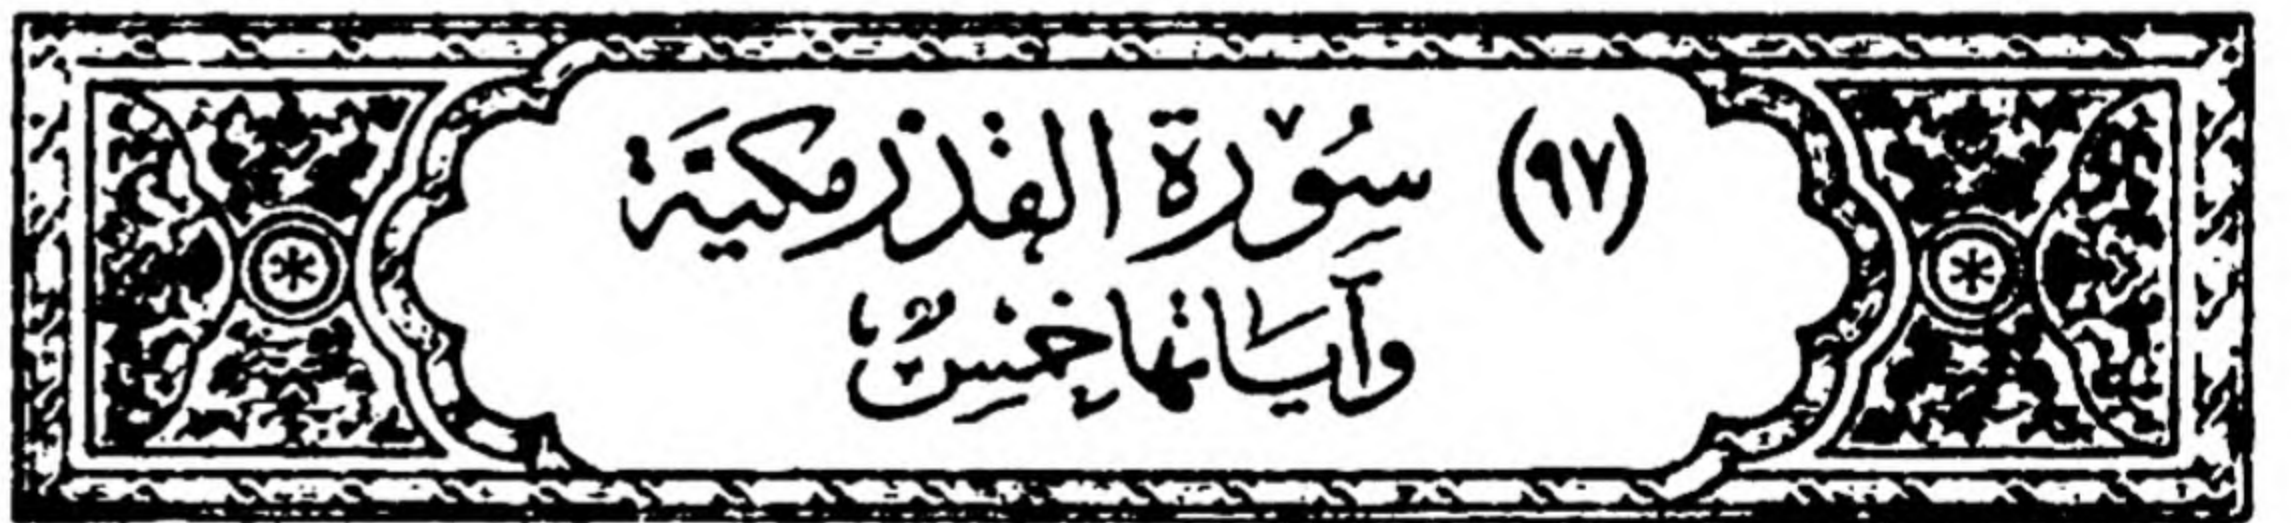 (٩٧) سُوْرَةِ الْقَدْرِ مَكيَّة
وَآيَاتهَا خَمْسٌ